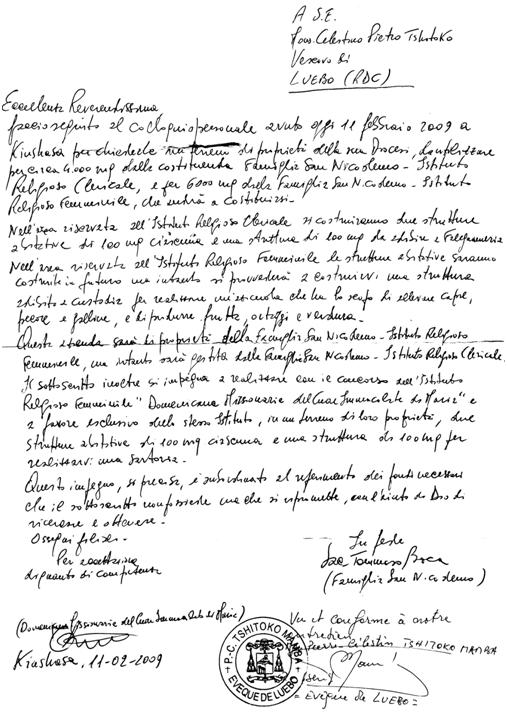 A S.E.
Mons. Celestino Pietro Tshitoko
Vescovo di
LUEBO (RDC)
Eccellenza Reverendissima
faccio seguito al colloquio personale avuto oggi 11 febbraio 2009 a
Kinshasa per chiederLe di proprietà della sua Diocesi, da utilizzare
per circa 4000 mq dalla costituenda Famiglia San Nicodemo - Istituto
Religioso Clericale, e per 6000 mq dalla Famiglia San Nicodemo - Istituto
Religioso Femminile, che andrà a costituirsi.
Nell'area riservata all'Istituto Religioso Clericale si costruiranno due strutture
abitative di 100 mq ciascuna e una struttura di 100 mq da adibire a Falegnameria
Nell'area riservata all'Istituto Religioso Femminile le strutture abitative saranno
costruite in futuro ma intanto si provvederà a costruirvi una struttura
adibita a custodia per realizzare un'azienda che ha lo scopo di allevare capre,
pecore e galline, e di produrre frutta, ortaggi e verdura.
Questa azienda sarà di proprietà della Famiglia San Nicodemo - Istituto Religioso
Femminile, ma intanto sarà gestita dalla Famiglia San Nicodemo - Istituto Religioso Clericale.
Il sottoscritto inoltre si impegna a realizzare con il concorso dell'Istituto
Religioso Femminile "Domenicane Missionarie del Cuor Immacolato di Maria" e
a favore esclusivo dello stesso Istituto, in un terreno di loro proprietà, due
strutture abitative di 100 mq ciascuna e una struttura di 100 mq per
realizzarvi una sartoria.
Questo impegno, si precisa, è subordinato al reperimento dei fondi necessari
che il sottoscritto non possiede ma che si ripromette, con l'aiuto di Dio di
ricercare e ottenere.
Ossequi filiali.
Per accettazione
di quanto di competenza
In fede
Sac. Tommaso Boca
(Famiglia San Nicodemo)
(Domenicane Missionarie del Cuor Immacolato di Maria)
Kinshasa, 11-02-2009
P.C. TSHITOKO MAMBA
EVEQUE DE LUEBO
Vu et conforme à notre
entretien
Pierre-Célestin TSHITOKO MAMBA
= Evêque de LUEBO =